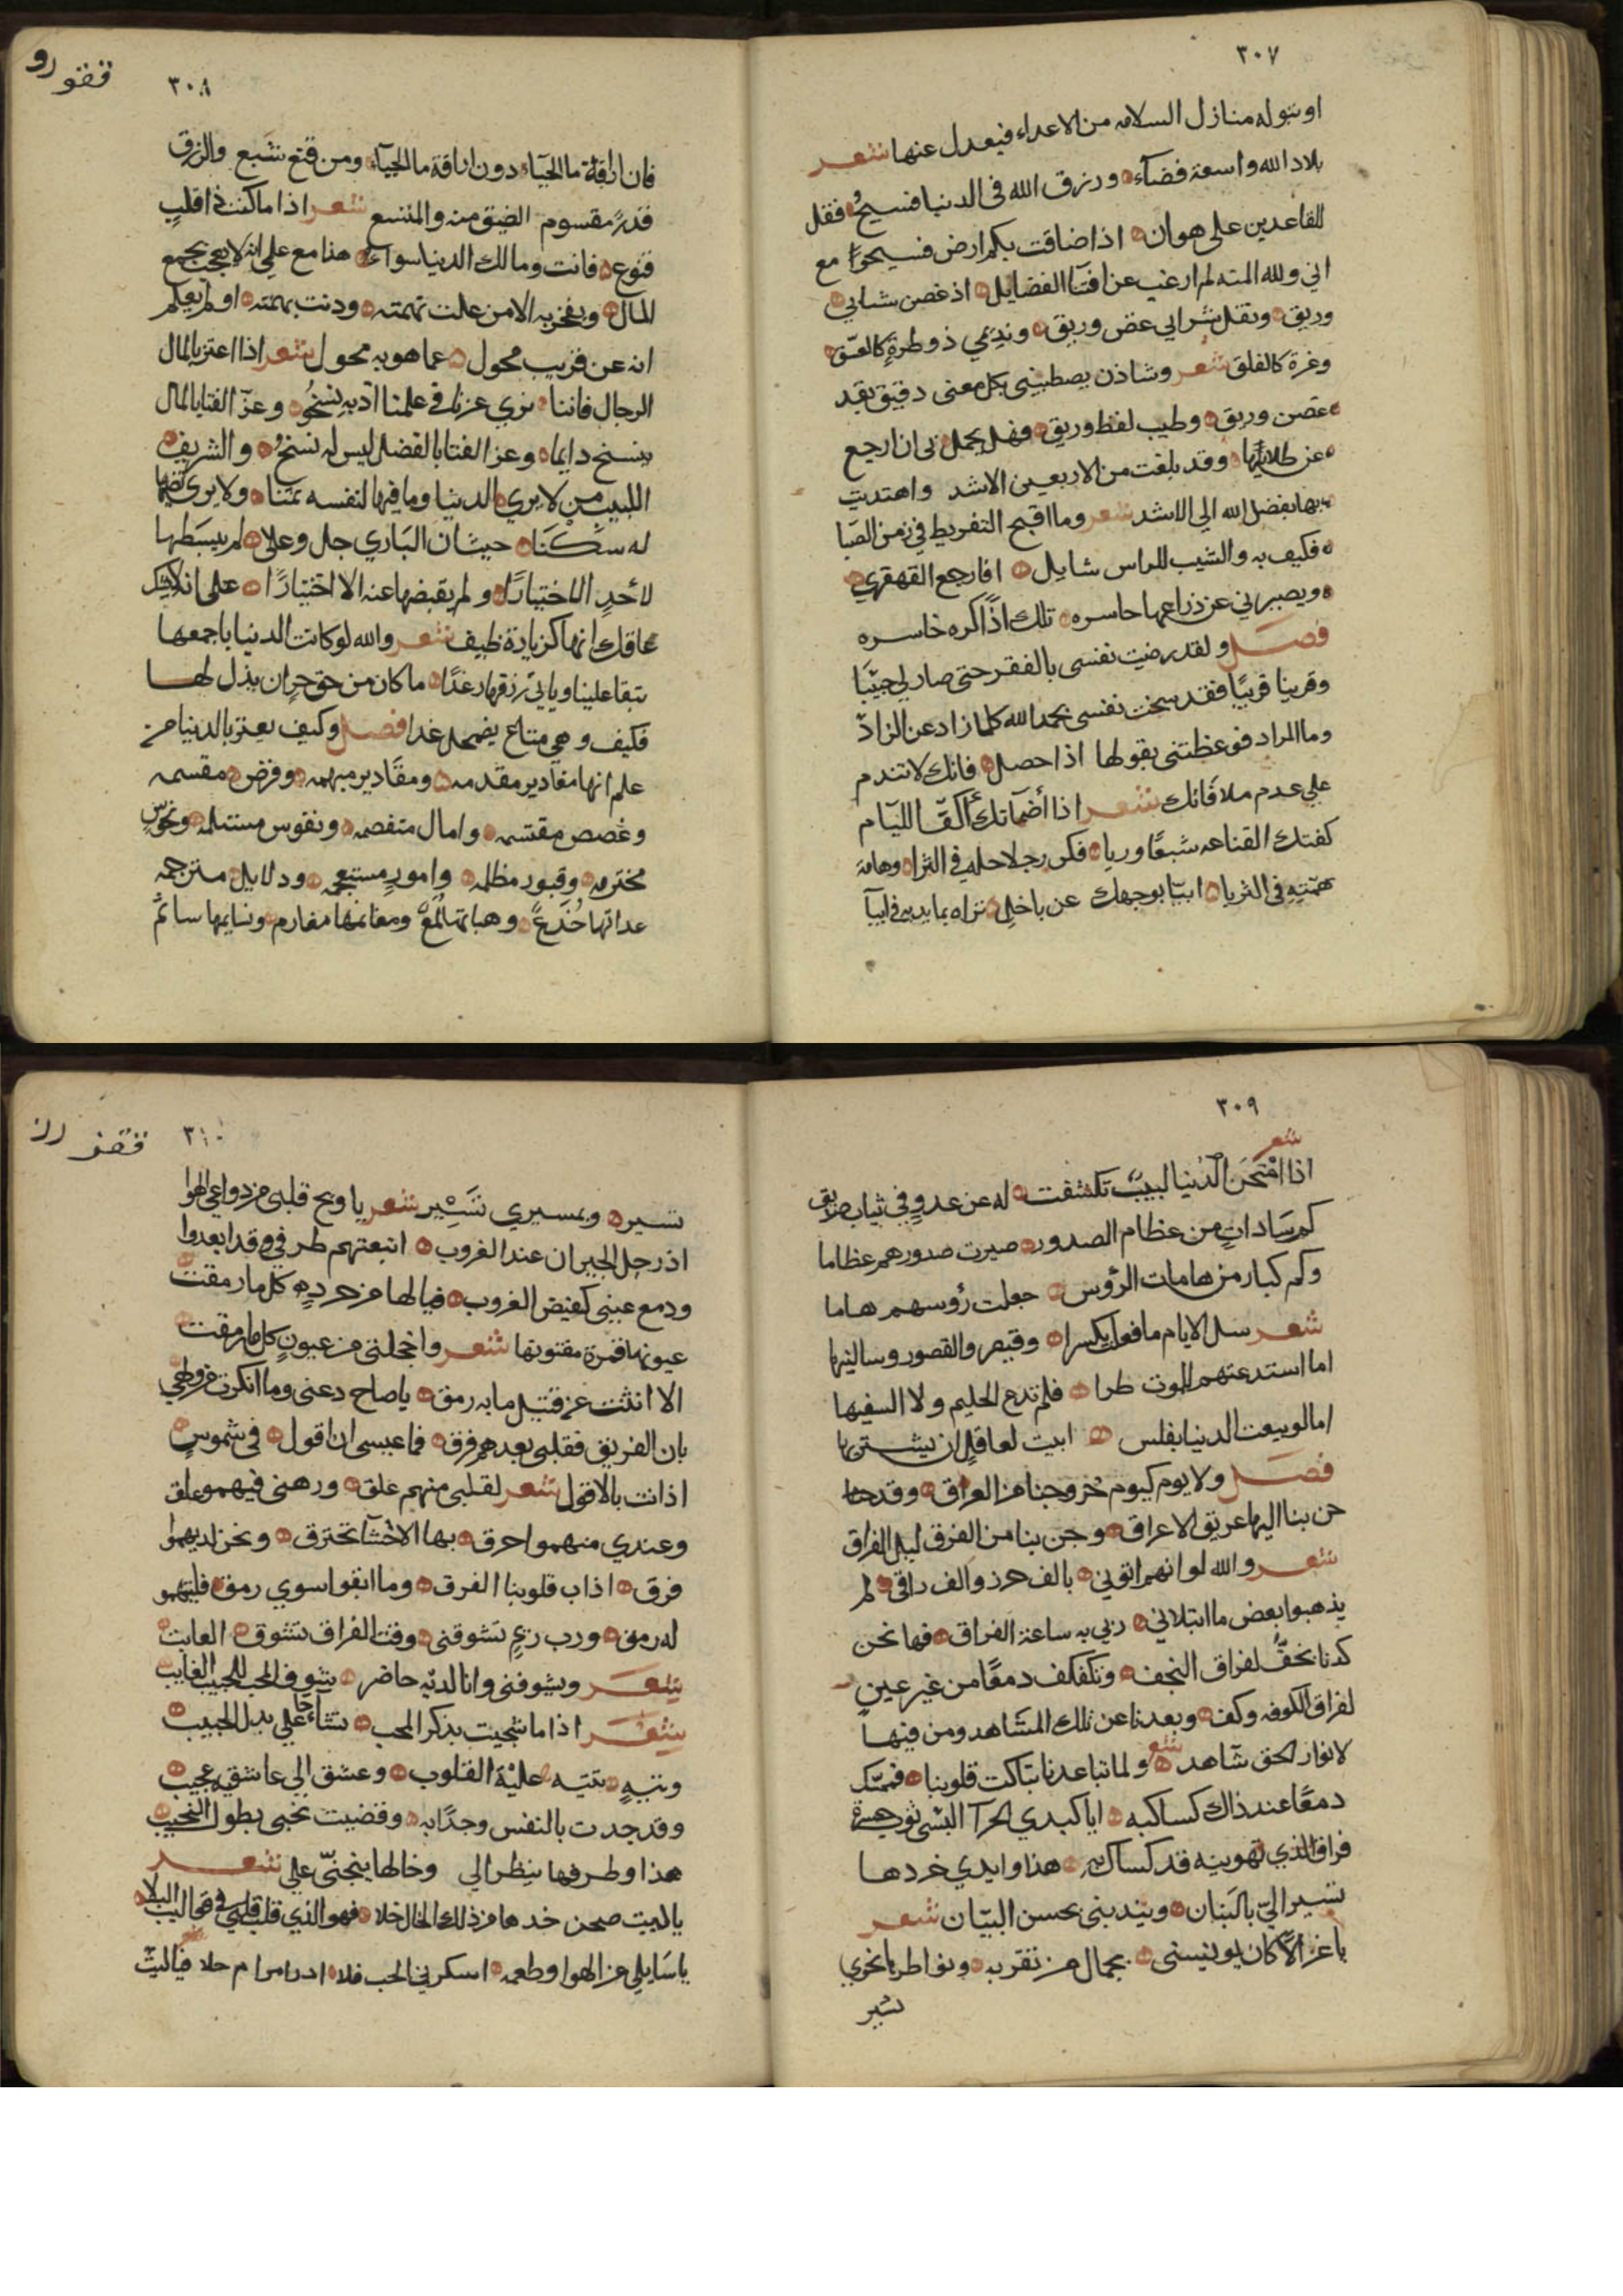 ٣٠٧
او بتوله منازل السلامه من الاعداء فيعدل عنها شعر
بلاد الله واسعة فضآء ورزق الله فى الدنيا فسيحُ فقل
للقاعدين على هوان اذا ضاقت بكم ارض فسيحوا مع
اني ولله المنه لم ارغب عن افتنا الفضايل اذ غصن شبابي
وريق ونقل شرابي عض وريق ونديمي ذو طرة كالغسق
وغرة كالفلق شعر وشاذن يصطبيني بكل معنى دقيق بقد
غصن وريق وطيب لفظ وريق وفهل يجمل بى ان ارجع
عن طلابها وقد بلغت من الاربعين الاشد واهتديت
بها بفضل الله الى الاشد شعر وما اقبح التفريط في زمن الصبا
فكيف به والشيب للراس شايل افارجع القهقري
ويصبرني عن ذراعها حاسره تلك اذًا كره خاسره
فصل ولقد رضيت نفسى بالفقر حتى صار لي حبيبًا
وقرينا قريبًا فقد سخت نفسى بحمد الله كلما زاد عن الزادّ
وما المراد فوعظتنى بقولها اذا حصل فانك لا تندم
علي عدم ملافاتك شعر اذا أضمآتك أكفّ الليآم
كفتك القناعه شبعًا وريا فكن رجلا رجله في الثرا وهامة
همّتِهِ فى الثريا ابيّا بوجهك عن باخلٍ تراه بما يديه ابيآ
٣٠٨
فان اراقة مآ الحيآء دون اراقة مآ الحيآء ومن قنع شبع والرزق
قدرٌ مقسوم الضيق منه والمتسع شعر اذا ما كنت ذا قلبٍ
قنوع فانت ومالك الدنيا سوآء هذا مع علمي انه لا يعجب بجمع
المال ويفخر به الا من علت نهمته ودنت همته اولم يعلم
انه عن قريب محول عما هو به محول شعر اذا اعتز بالمال
الرجال فاننا نري عزنا في علمنا ادبه نسخُ وعزّ الفتا بالمال
ينسخ دايما وعز الفتا بالفضل ليس له نسخُ والشريف
اللبيب من لا يري الدنيا وما فيها لنفسه ثمنا ولا يري نعيمها
له سَكَنَا حيث ان البَاري جل وعلا لم يبسَطها
لأحدٍ الا اختبارًا ولم يقبضها عنه الا اختيارًا على انه لا يشك
عاقل انها كزيادة طيف شعر والله لو كانت الدنيا باجمعها
تبقا علينا وياتي رزقها رغدًا ما كان من حق حرٍ ان يذل لها
فكيف وهي متاع يضمحل غدا فصل وكيف يعتز بالدنيا من
علم انها مقادير مقدمه ومقادير مبهمه وفرض مقسمه
وغصص مقتسمه وامال منفصمه ونفوس مستلمه ونحوس
مخترمه وقبور مظلمه وامورٍ مستعجمه ودلايل مترجمه
عداتها خُدَعً وهباتها لُمَعٌ ومغانمها مغارم ونسايمها سمآئم
٣٠٩
شعر
اذا امتحَن الدُنيا لبيبٌ تكشفت له عن عدوٍ في ثياب صديق
كم سَاداتٍ من عظام الصدور صيرت صدورهم عظاما
وكم كبار من هامات الرؤس جعلت رؤسهم هاما
شعر سل الايام ما فعلت بكسرا وقيصر والقصور وساكنيها
اما استدعتهم للموت طرا فلم تدع الحليم ولا السفيها
اما لو بيعت الدنيا بفلس ابيت لعاقلٍ ان يشتريها
فصل ولا يوم كيوم خروجنا من العراق وقد حنا
حن بنا اليها عريق الاعراق وجن بنا من الفرق ليل الفراق
شعر والله لو انهم اتوني بالف حرز والف راقى لم
يذهبوا بعض ما ابتلاني ربي به ساعة الفراق فها نحن
كدنا نخفُّ لفراق النجف ونكفكف دمعًا من غير عينٍ
لفراق الكوفه وكف وبعدنا عن تلك المشاهد ومن فيها
لانوار الحق شآهد شعر ولما تباعدنا تباكت قلوبنا فممسك
دمعًا عند ذاك كساكبه ايا كبدي الحرآ البسى ثوب حسرة
فراق الذي تهوينه قد كساك به هذا وايدي خردها
تشير اليّ بالبَنان ويندبنى بحسن البيّان شعر
يا غزالاً كان يونسنى بجمال من تقربه ونواطرها نحوي
تشير
٣١٠
تسير وبمسيري تَشِير شعر يا ويح قلبى من دواعي الهوا
اذ رحل الجيران عند الغروب اتبعتهم طرفي وقد ابعدوا
ودمع عينى كفيض الغروب فيالها من خرده كل ما رمقت
عيونها قمرة مفتونها شعر واخجلتى من عيونٍ كلما رمقت
الا انثنت عن قتيل ما به رمق يا صاح دعنى وما انكرت من ولهي
بان الفريق فقلبى بعدهم فرق فما عيسى ان اقول فى شموسٍ
اذنت بالافول شعر لقلبى منهم علق ورهنى فيهمو غلق
وعندي منهمو احرق بها الاحشآ تحترق ونحن لديهموا
فرق اذاب قلوبنا الفرق وما ابقوا سوي رمق فليتهمو
له رمق ورب ريمٍ تشوقنى وقت الفراق تشوق العاتب
شعر ويشوفنى وانا لديه حاضر شوق المحب للحبيب الغايب
شعر اذا ما شجيت بذكر المحب تشآءجا علي بدل الحبيب
ويتيهٍ تتيه عليْهَ القلوب وعشق الي عاشقيه عجيب
وقد جدت بالنفس وجدًا به وقضيت نحبى بطول النحيب
هذا وطرفها ينظر الي وخالها يتجنّى علي شعر
يا لبيت صحن خدها من ذلك الخال خلا فهو الذي قلب قلبى في مخاليب البلا
يا سَايلي عن الهوا وطعمه اسكرني الحب فلا ادرا مرام حلا فياليتَ